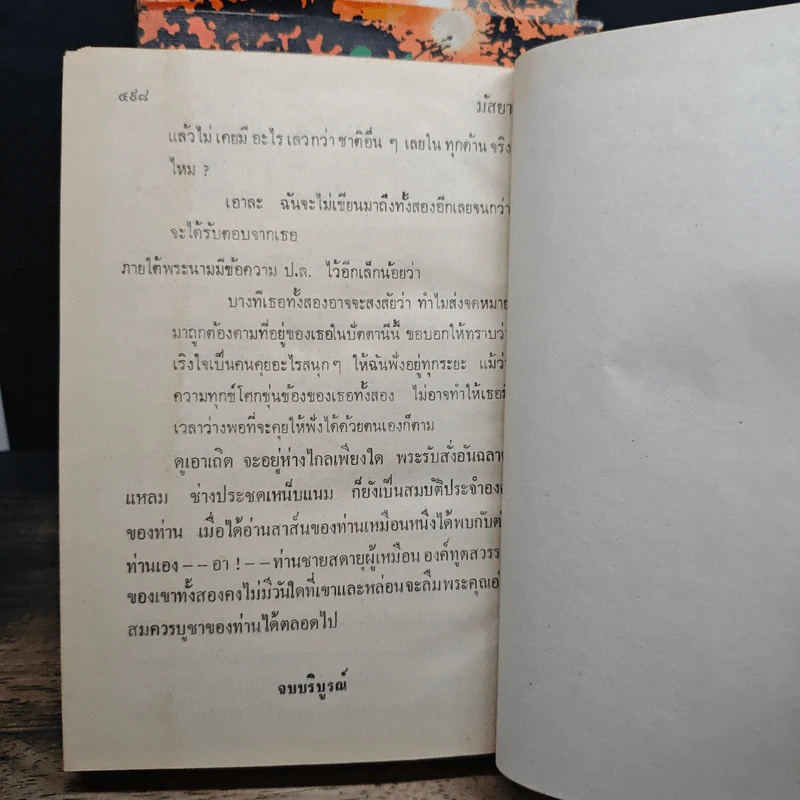 ๔๙๘
มัสยา
แล้วไม่ เคยมี อะไร เลวกว่า ชาติอื่น ๆ เลยใน ทุกด้าน จริง
ไหม ?
เอาละ ฉันจะไม่เขียนมาถึงทั้งสองอีกเลยจนกว่า
จะได้รับตอบจากเธอ
ภายใต้พระนามมีข้อความ ป.ล. ไว้อีกเล็กน้อยว่า
บางทีเธอทั้งสองอาจจะสงสัยว่า ทำไมส่งจดหมาย
มาถูกต้องตามที่อยู่ของเธอในปัตตานีนี้ ขอบอกให้ทราบว่า
เริงใจเป็นคนคุยอะไรสนุก ๆ ให้ฉันฟังอยู่ทุกระยะ แม้ว่า
ความทุกข์โศกขุ่นข้องของเธอทั้งสอง ไม่อาจทำให้เธอ
เวลาว่างพอที่จะคุยให้ฟังได้ด้วยตนเองก็ตาม
ดูเอาเถิด จะอยู่ห่างไกลเพียงใด พระรับสั่งอันฉลาด
แหลม ช่างประชดเหน็บแนม ก็ยังเป็นสมบัติประจำอง
ของท่าน เมื่อได้อ่านสาส์นของท่านเหมือนหนึ่งได้พบกับ
ท่านเอง -- อา ! -- ท่านชายสดายุผู้เหมือน องค์ทูตสวรร
ของเขาทั้งสองคงไม่มีวันใดที่เขาและหล่อนจะลืมพระคุณ
สมควรบูชาของท่านได้ตลอดไป
จบบริบูรณ์